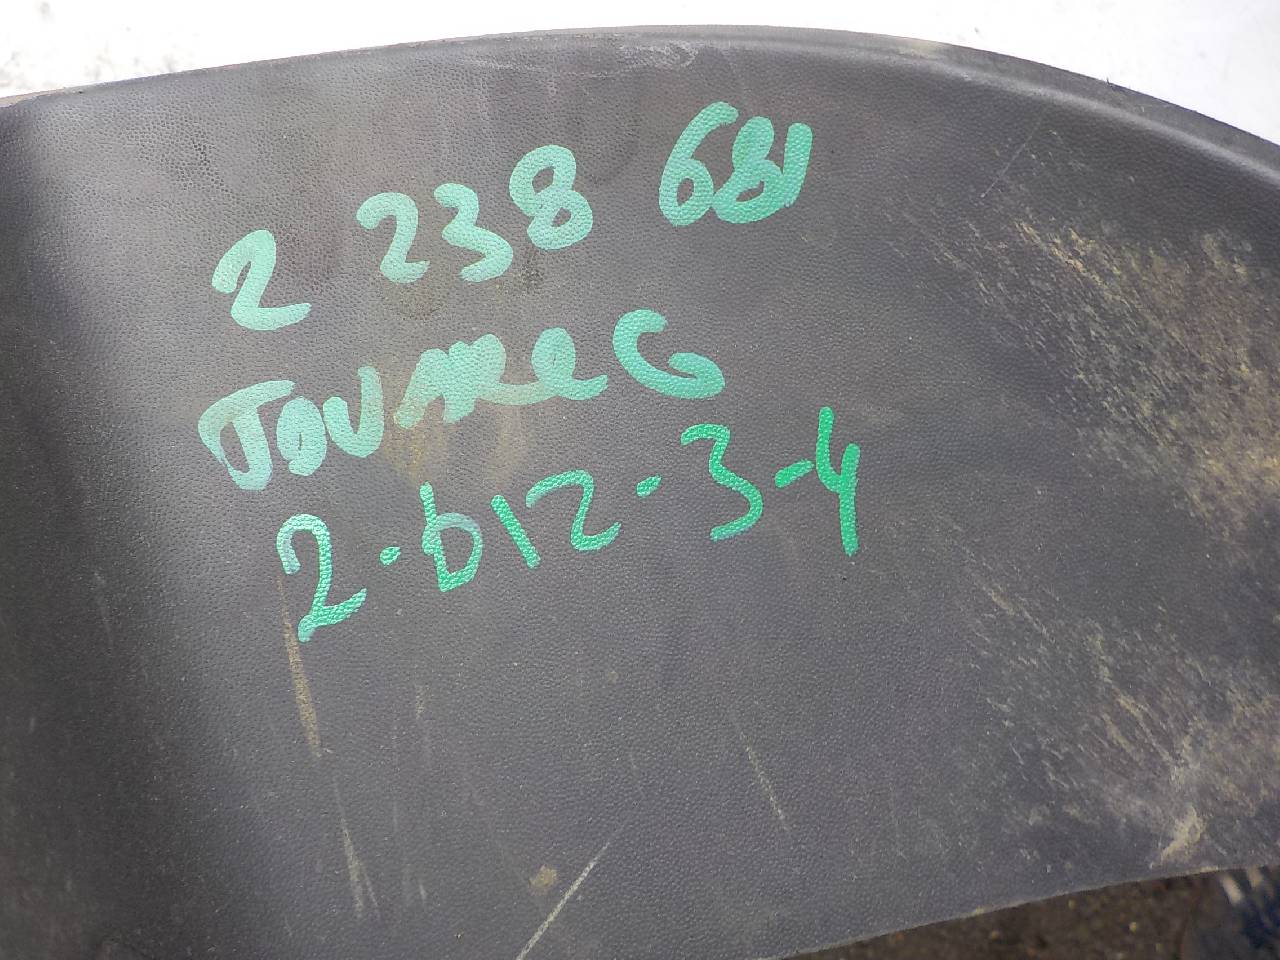 2 238 681
2-b12-3-4